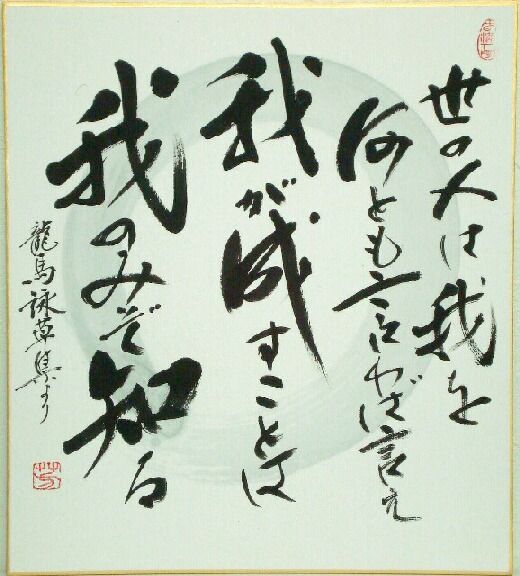 世の人は我を
何とも言わば言え
我が成すことは
我のみぞ知る
龍馬詠草集より